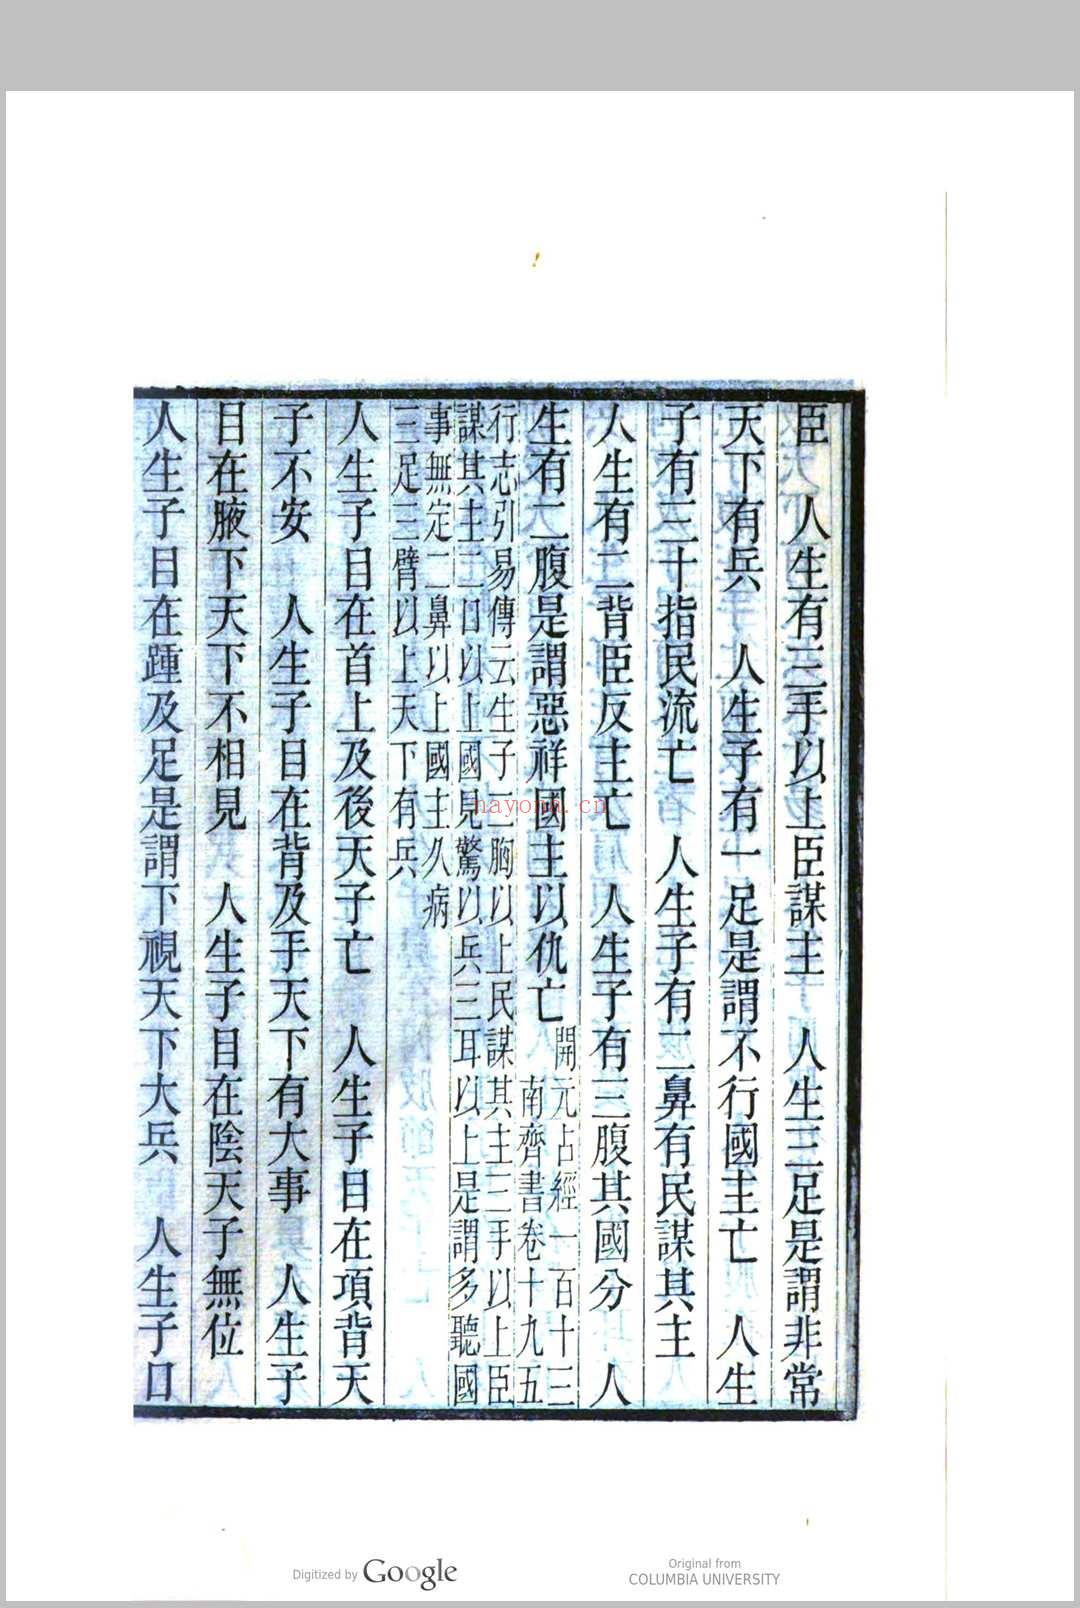 臣　人生有三手以上臣謀主　人生三足是謂非常
天下有兵　人生子有一足是謂不行國主亡　人生
子有三十指民流亡　人生子有二鼻有民謀其主
人生有二背臣反主亡　人生子有三腹其國分　人
生有二腹是謂惡祥國主以仇亡
開元占經一百十三
南齊書卷十九五
行志引易傳云生子三胸以上民謀其主三手以上臣
謀其主二口以上國見驚以兵三耳以上是謂多聽國
事無定二鼻以上國主久病
三足三臂以上天下有兵
人生子目在首上及後天子亡　人生子目在項背天
子不安　人生子目在背及手天下有大事　人生子
目在腋下天下不相見　人生子目在陰天子無位
人生子目在踵及足是謂下視天下大兵　人生子口
nayona.cn
Digitized by Google
Original from
COLUMBIA UNIVERSITY